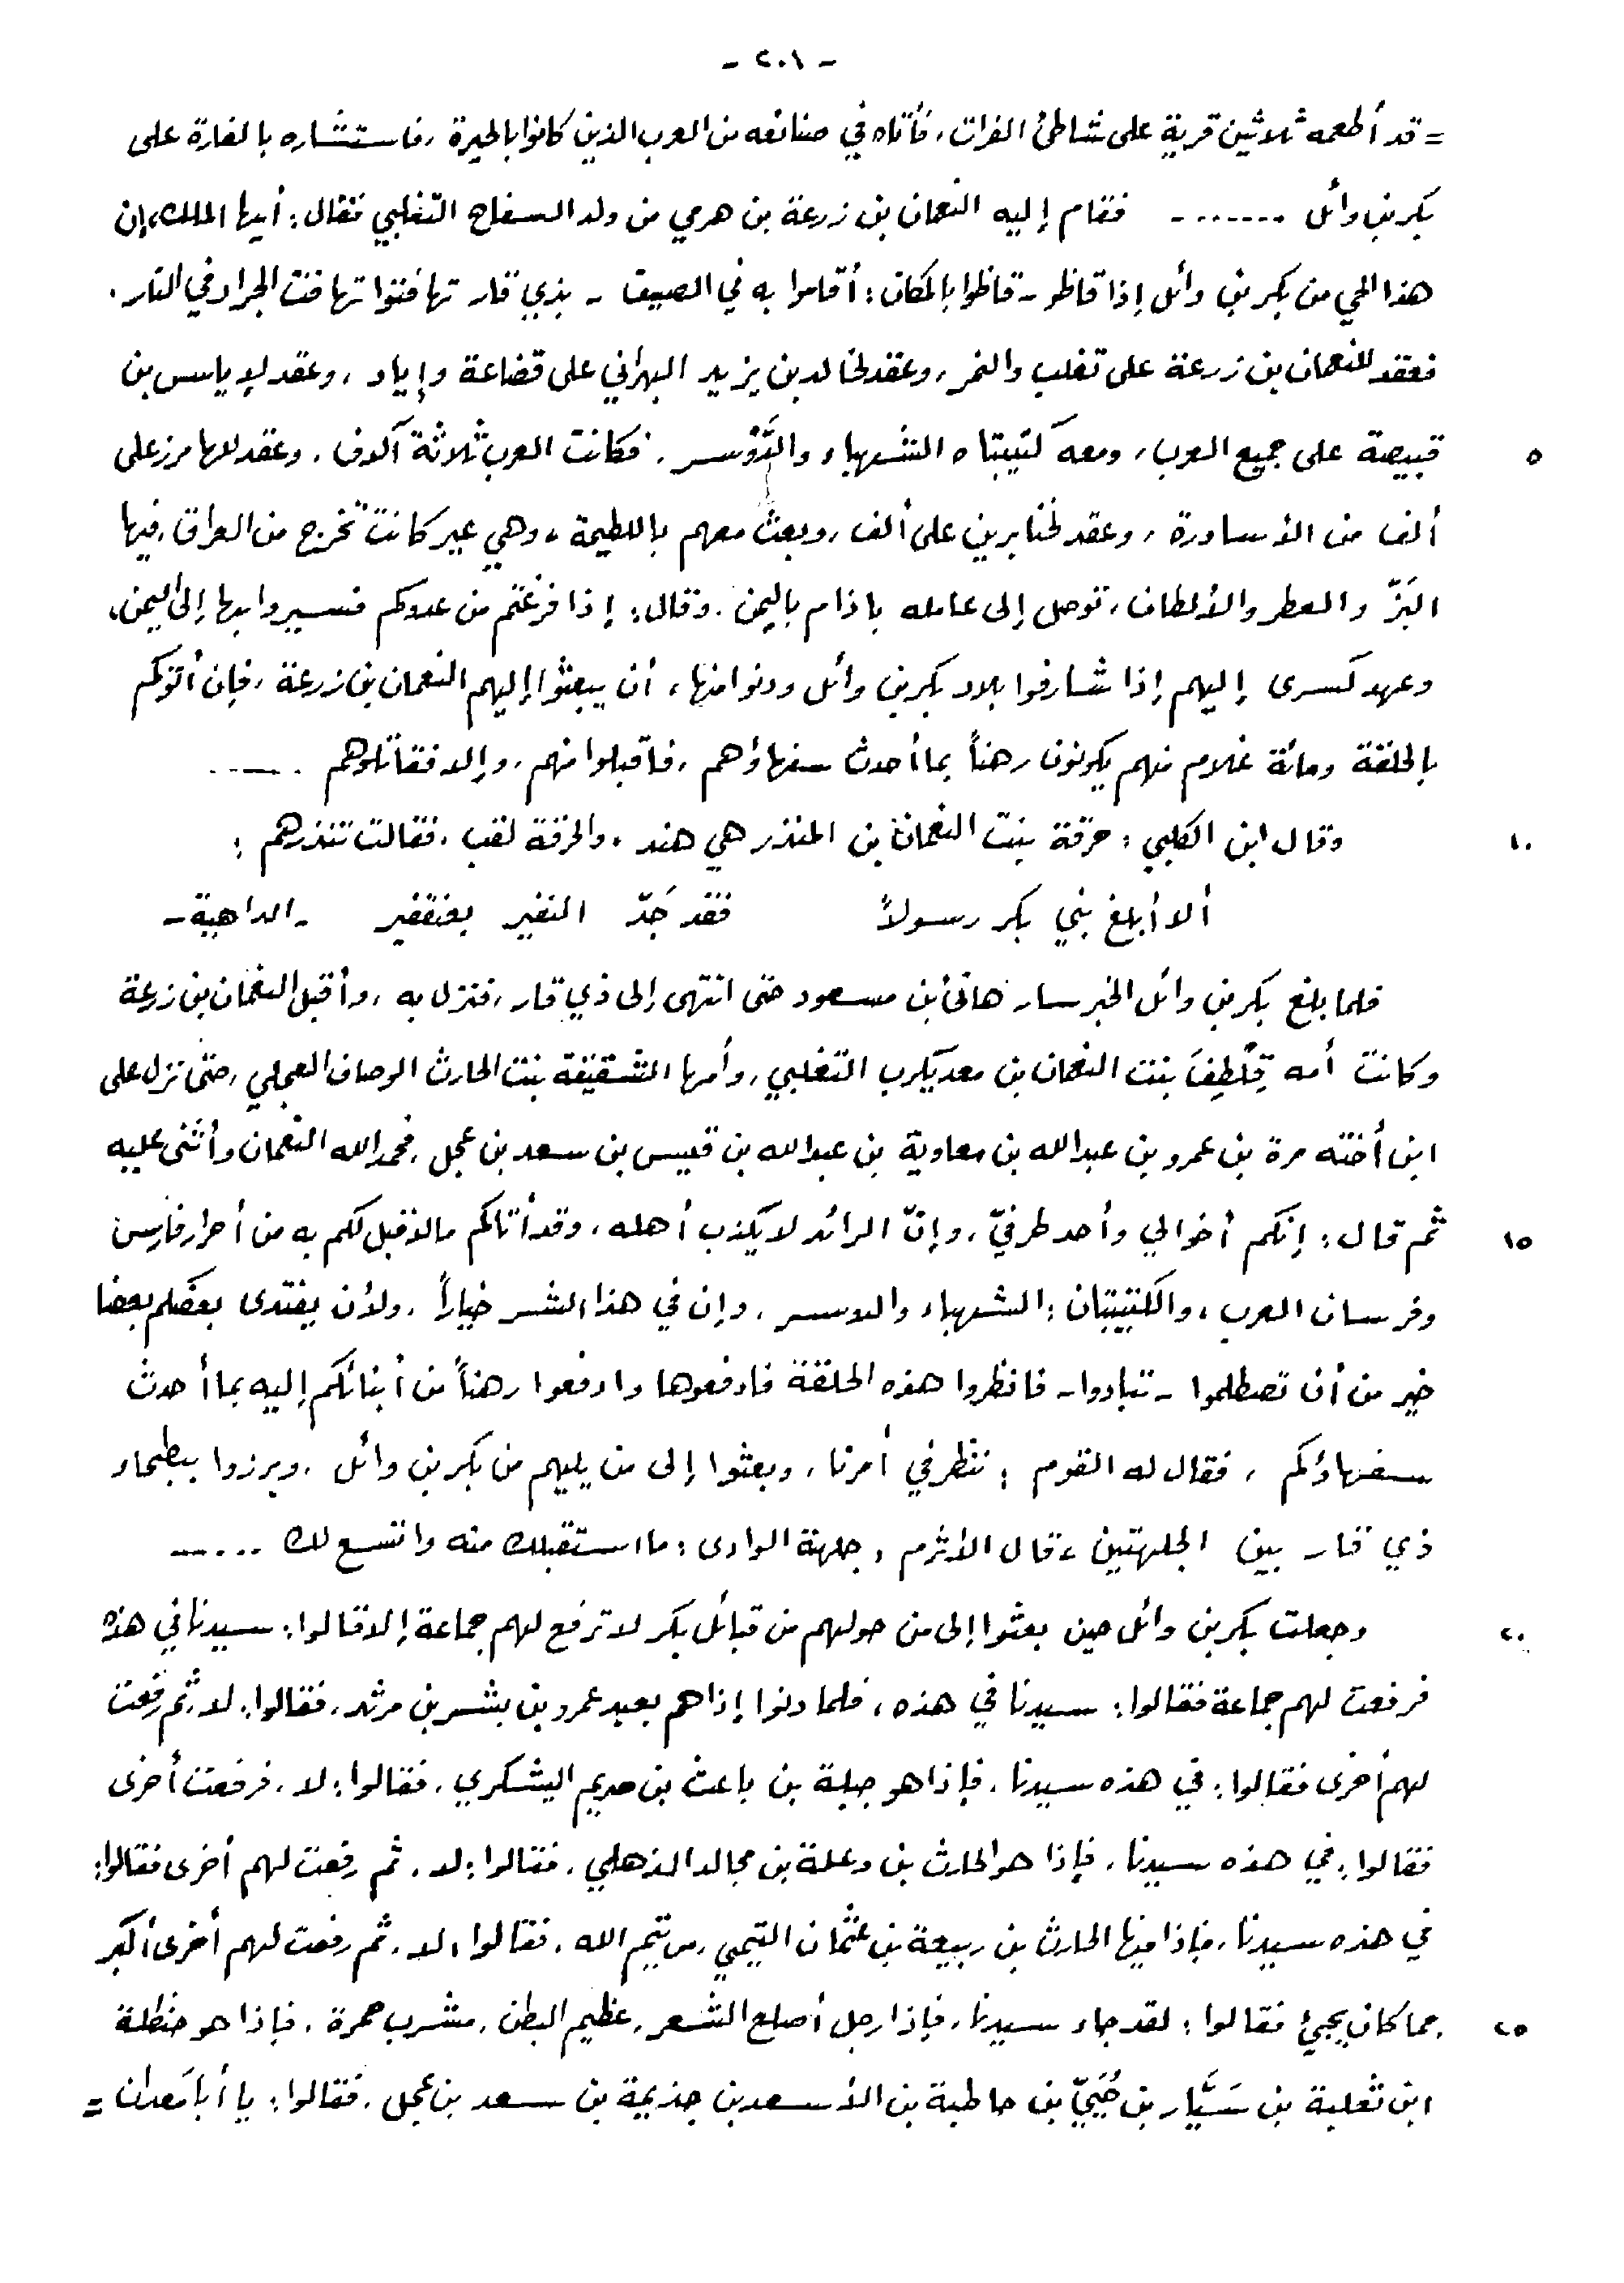 - ٢٠١ -
= قد أطعمه ثلاثين قرية على شاطئ الفرات، فأتاه في صنائعه من العرب الذين كانوا بالحيرة، فاستشاره بالغارة على
بكر بن وائل ....... فقام إليه النعمان بن زرعة بن هرمي من ولد السفاح التغلبي فقال: أيها الملك، إن
هذا الحي من بكر بن وائل إذا قاظو - قاظوا بالمكان: أقاموا به في الصيف - بذي قار تهافتوا تهافت الجراد في النار.
فعقد للنعمان بن زرعة على تغلب والنمر، وعقد لخالد بن يزيد البهراني على قضاعة وإياد، وعقد لإياس بن
قبيصة على جميع العرب، ومعه كتيبتاه الشهباء والدَّوْسر، فكانت العرب ثلاثة آلاف، وعقد للهامرز على ٥
ألف من الأساورة، وعقد لخنابرين على ألف، وبعث معهم باللطيمة، وهي عير كانت تخرج من العراق، فيها
البَزّ والعطر والألطاف، توصل إلى عامله باذام باليمن. وقال: إذا فرغتم من عدوكم فسيروا بها إلى اليمن،
وعهد كسرى إليهم إذا شارفوا بلاد بكر بن وائل ودنوا منها، أن يبعثوا إليهم النعمان بن زرعة، فإن أتوكم
بالحلقة ومائة غلام منهم يكونون رهناً بما أحدث سفهاؤهم، فاقبلوا منهم، وإلا فقاتلوهم ......
وقال ابن الكلبي: حرقة بنت النعمان بن المنذر هي هند، والحرقة لقب، فقالت تنذرهم: ١٠
ألا أبلغ بني بكر رسولاً فقد جَدّ النفير بعنقفير -الداهية-
فلما بلغ بكر بن وائل الخبر سار هانئ بن مسعود حتى انتهى إلى ذي قار، فنزل به، وأقبل النعمان بن زرعة
وكانت أمه قِلْطِفَ بنت النعمان بن معد يكرب التغلبي، وأمها الشقيقة بنت الحارث الوصاف العجلي، حتى نزل على
ابن أخته مرة بن عمرو بن عبدالله بن معاوية بن عبدالله بن قيس بن سعد بن عجل، فحمد الله النعمان وأثنى عليه
ثم قال: إنكم أخوالي وأحد طرفيّ، وإنّ الرائد لا يكذب أهله، وقد أتاكم مالا قبل لكم به من أحرار فارس ١٥
وفرسان العرب، والكتيبتان: الشهباء والدوسر، وإن في هذا الشر خياراً، ولأن يفتدى بعضكم بعضا
خير من أن تصطلموا - تبادوا - فانظروا هذه الحلقة فادفعوها وادفعوا رهناً من أبنائكم إليه بما أحدث
سفهاؤكم، فقال له القوم: ننظر في أمرنا، وبعثوا إلى من يليهم من بكر بن وائل، وبرزوا ببطحاء
ذي قار بين الجلهتين، قال الأثرم، جلهة الوادى: ما استقبلك منه واتسع لك ......
وجعلت بكر بن وائل حين بعثوا إلى من حولهم من قبائل بكر لا ترفع لهم جماعة إلا قالوا: سيدنا في هذه ٢٠
فرفعت لهم جماعة فقالوا: سيدنا في هذه، فلما دنوا إذا هم بعبد عمرو بن بشر بن مرثد، فقالوا: لا، ثم رفعت
لهم أخرى فقالوا: في هذه سيدنا، فإذا هو جبلة بن باعث بن صريم اليشكري، فقالوا: لا، فرفعت أخرى
فقالوا: في هذه سيدنا، فإذا هو الحارث بن وعلة بن مجالد الذهلي، فقالوا: لا، ثم رفعت لهم أخرى فقالوا:
في هذه سيدنا، فإذا فيها الحارث بن ربيعة بن عثمان التيمي، من تيم الله، فقالوا: لا، ثم رفعت لهم أخرى أكبر
مما كان يجيئ فقالوا: لقد جاء سيدنا، فإذا رجل أصلع الشعر، عظيم البطن، مشرب حمرة، فإذا هو حنظلة ٢٥
ابن ثعلبة بن سَيَّار بن حُيَيّ بن حاطبة بن الأسعد بن جذيمة بن سعد بن عجل، فقالوا: يا أبا مَعدان =